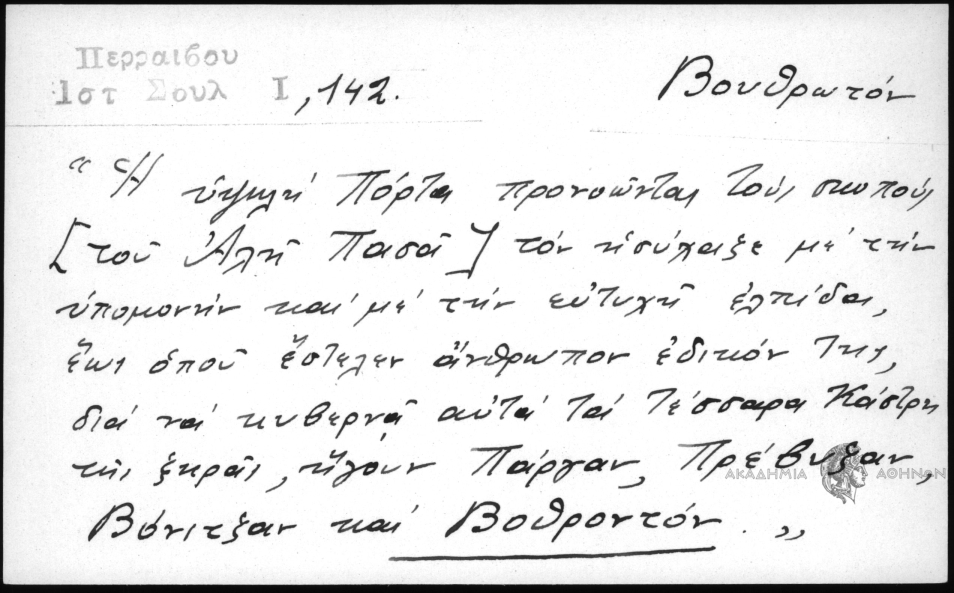 Περραιβου
Ιστ Σουλ Ι, 142.
Βουθρωτόν
“ Ἡ ὑψηλή Πόρτα προνοῶντας τούς σκοπούς
[τοῦ Ἀλῆ Πασᾶ] τόν ἡσύχαξε μέ τήν
ὑπομονήν καί μέ τήν εὐτυχῆ ἐλπίδα,
ἕως ὁποῦ ἔστελεν ἄνθρωπον ἐδικόν της,
διά νά κυβερνᾷ αὐτά τά τέσσαρα Κάστρη
τῆς ξηρᾶς, ἤγουν Πάργαν, Πρέβυζαν,
Βόνιτζαν καί Βοθροντόν. „
ΑΚΑΔΗΜΙΑ ΑΘΗΝΩΝ